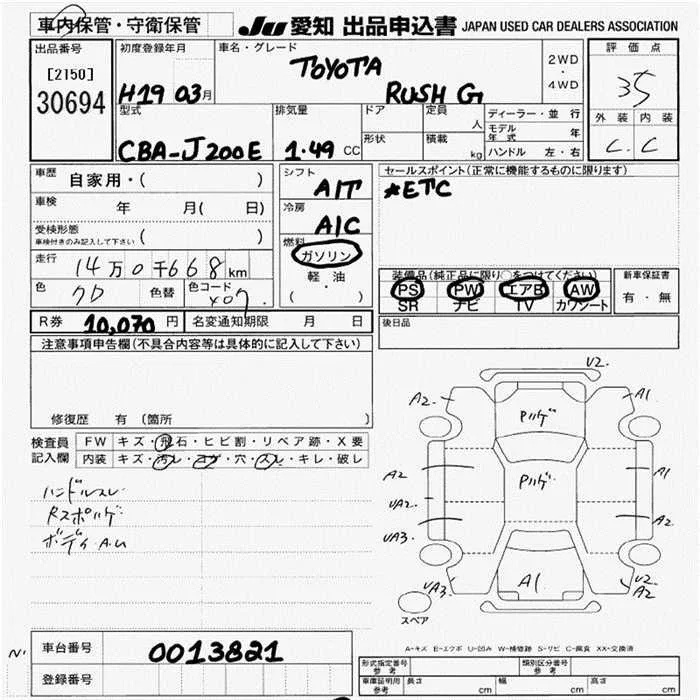 車内保管・守衛保管
JU 愛知 出品申込書 JAPAN USED CAR DEALERS ASSOCIATION
出品番号
[2150]
30694
初度登録年月
H19 03月
車名・グレード
TOYOTA
RUSH G
2WD
・
4WD
評価点
35
外装 内装
C. C
型式
CBA-J200E
排気量
1.49 CC
ドア
形状
定員
人
積載
kg
ディーラー・並 行
モデル年式 年
ハンドル 左・右
車歴
自家用・( )
車検 年 月( 日)
受検形態
車検付きのみ記入して下さい ( )
走行
14万0千668km
色
クロ
色替
色コード
X07
シフト
A/T
冷房
A/C
燃料
ガソリン
軽・油
( ・ )
セールスポイント(正常に機能するものに限ります)
*ETC
装備品(純正品に限り○をつけてください)
PS PW エアB AW
SR ナビ TV カワシート
新車保証書
有・無
R券 10,070円
名変通知期限 月 日
後日品
注意事項申告欄(不具合内容等は具体的に記入して下さい)
修復歴 有 (箇所
検査員
記入欄
FW キズ・飛石・ヒビ割・リペア跡・X要
内装 キズ・汚レ・コゲ・穴・スレ・キレ・破レ
ハンドルスレ
Rスポハゲ
ボディ A.U
V2.
A2. A1
Pハゲ
A2 A1
Pハゲ
UA2. A2
UA3.
UA3 A1 U2
A2
スペア
A-キズ E-エクボ U-凹み W-補修跡 S-サビ C-腐食 XX-交換済
N'
車台番号 0013821
登録番号
形式指定番号
参考
類別区分番号
参考
車庫証明用
参考
長さ cm 幅 cm 高さ cm